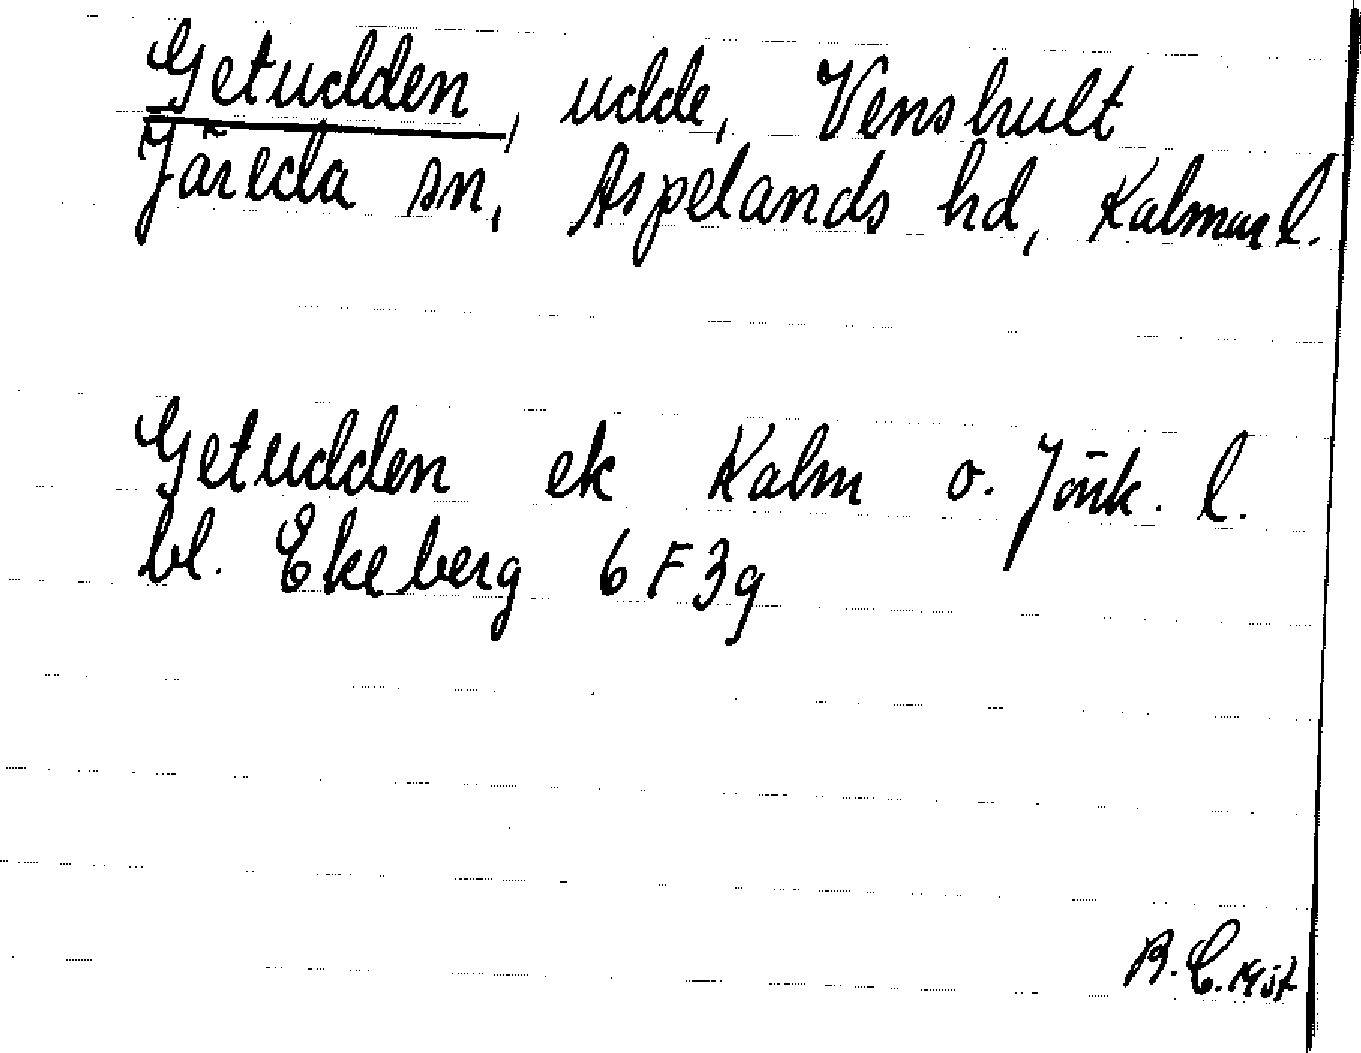 Getudden, udde, Venshult
Järeda sn, Aspelands hd, Kalmar l.
Getudden ek Kalm o. Jönk. l.
bl. Ekeberg 6 F 3g
B. C.